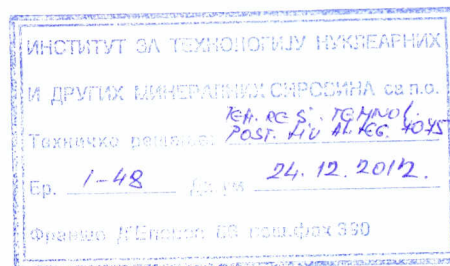 ИНСТИТУТ ЗА ТЕХНОЛОГИЈУ НУКЛЕАРНИХ
И ДРУГИХ МИНЕРАЛНИХ СИРОВИНА са п.о.
TEH. REŠ. TEHNOL.
Техничко решење: POST. LIV AL LEG. 4045
Бр. 1-48 Датум 24.12.2012.
Франше Д'Епереа 86 пош.фах 390